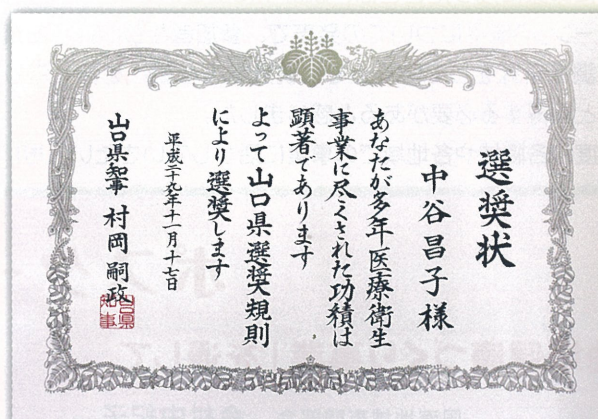 選奨状
中谷昌子様
あなたが多年医療衛生
事業に尽くされた功績は
顕著であります
よって山口県選奨規則
により選奨します
平成二十九年十一月十七日
山口県知事 村岡嗣政
山口県
知事